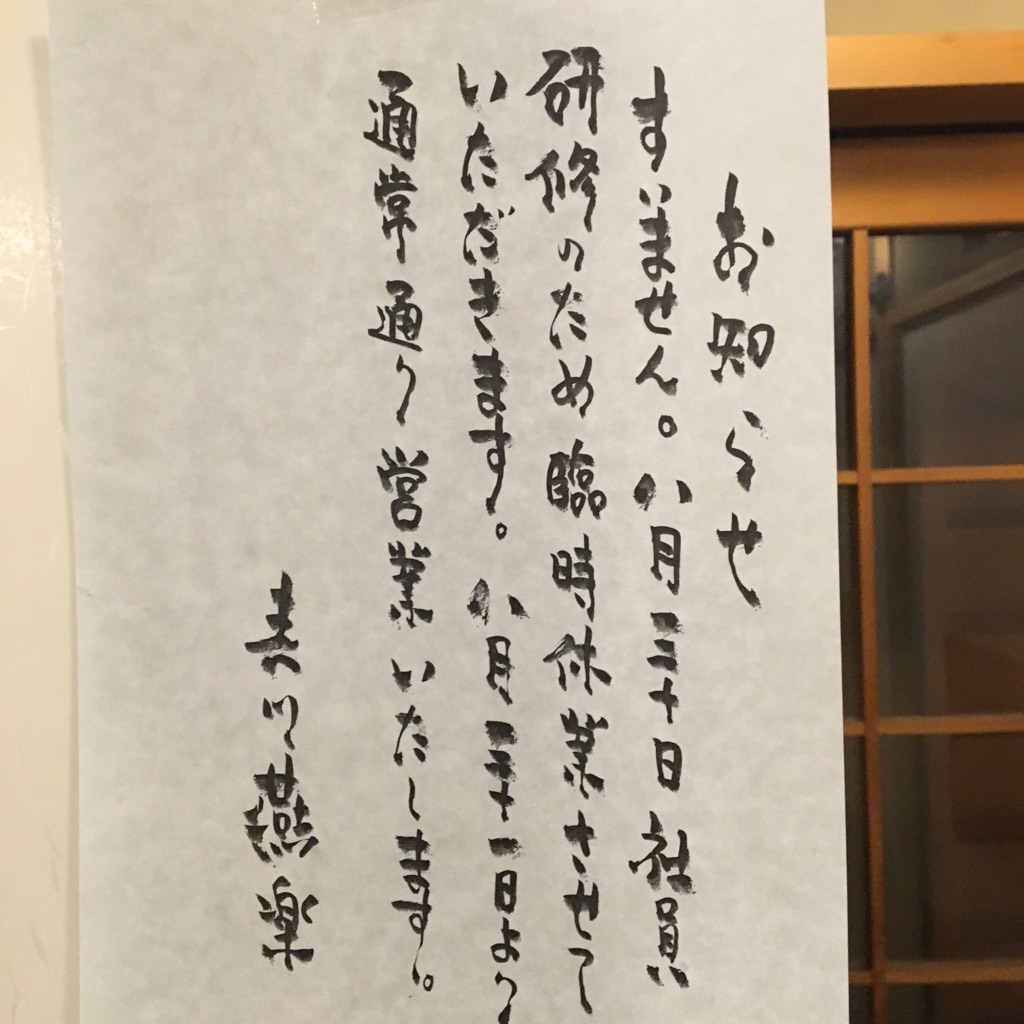 お知らせ
すいません。八月三十日社員
研修のため臨時休業させて
いただきます。八月三十一日より
通常通り営業いたします。
素川燕楽